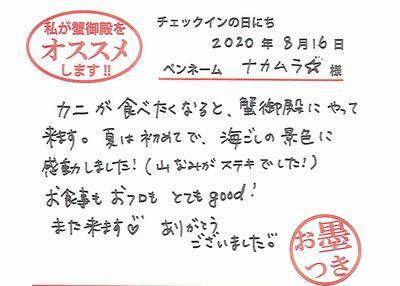 私が蟹御殿を
オススメ
します!!
チェックインの日にち
2020年8月16日
ペンネーム ナカムラ☆ 様
カニが食べたくなると、蟹御殿にやって
来ます。夏は初めてで、海ごしの景色に
感動しました!(山なみがステキでした!)
お食事もおフロもとてもgood!
また来ます♡ ありがとう
ございました
お墨
つき